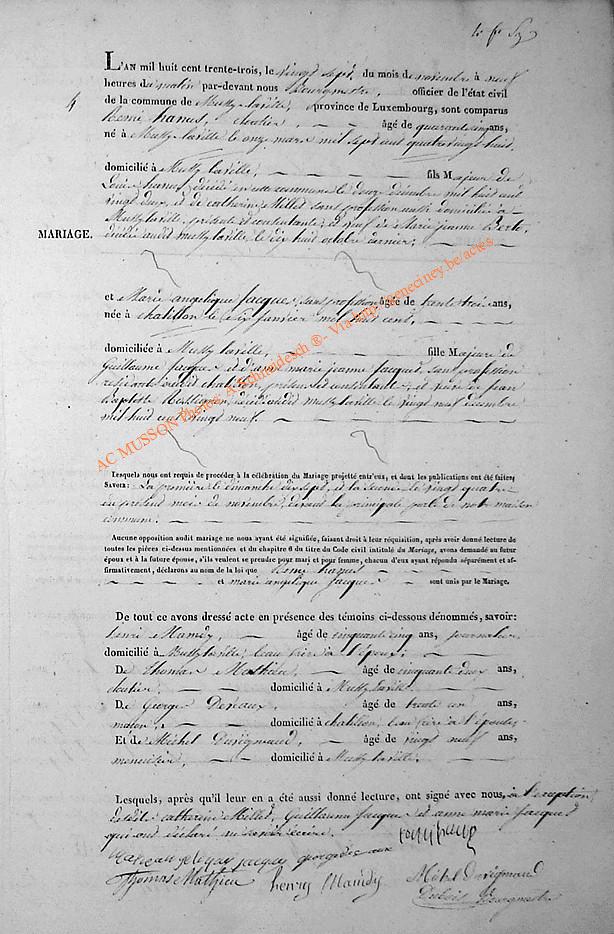 4
L'AN mil huit cent trente-trois, le vingt sept du mois de novembre à neuf
heures du matin par-devant nous Bourgmestre, officier de l'état civil
de la commune de Mussy laville, province de Luxembourg, sont comparus
Remi hanus, cloutier, âgé de quarante cinq ans,
né à Mussy laville le onze mars mil sept cent quatre vingt huit
domicilié à Mussy laville, fils Majeur de
Louis hanus, décédé en cette commune le deux décembre mil huit cent
vingt deux, et de catherine Millet sans profession aussi domiciliée à
Mussy laville, présente et consentante, et veuf de Marie jeanne
MARIAGE.
décédée audit mussy laville le dix huit octobre dernier,
et Marie angelique Jacques, sans profession âgée de trente trois ans,
née à chatillon le six janvier mil huit cent,
domiciliée à Mussy laville, fille Majeure de
Guillaume Jacques et d'anne marie jeanne Jacques, sans profession
audit chatillon, présens et consentants, et veuve de Jean
Baptiste décédé audit mussy laville le vingt neuf décembre
mil huit cent vingt neuf.
Lesquels nous ont requis de procéder à la célébration du Mariage projetté entr'eux, et dont les publications ont été faites,
SAVOIR: La première le dimanche dix sept, et la seconde le vingt quatre
du présent mois de novembre, devant la principale porte de notre maison
commune.
Aucune opposition audit mariage ne nous ayant été signifiée, faisant droit à leur réquisition, après avoir donné lecture de
toutes les pièces ci-dessus mentionnées et du chapitre 6 du titre du Code civil intitulé du Mariage, avons demandé au futur
époux et à la future épouse, s'ils veulent se prendre pour mari et pour femme, chacun d'eux ayant répondu séparément et af-
firmativement, déclarons au nom de la loi que Remi hanus
et marie angelique Jacques sont unis par le Mariage.
De tout ce avons dressé acte en présence des témoins ci-dessous dénommés, savoir:
henri Mandy, âgé de cinquante cinq ans, journalier
domicilié à Mussy laville, beau frère à l'époux;
De Thomas Mathieu âgé de cinquante deux ans,
cloutier domicilié à Mussy laville
De George âgé de trente un ans,
maçon, domicilié à chatillon, beau frère à l'épouse;
Et de Michel âgé de vingt neuf ans,
menuisier, domicilié à Mussy laville.
Lesquels, après qu'il leur en a été aussi donné lecture, ont signé avec nous, à l'exception
catherine Millet, Guillaume Jacques et anne marie Jacques
qui ont déclaré ne savoir écrire.
Thomas Mathieu henry Mandy Michel
Bourgmestre
AC MUSSON Photos: A.Schmidesch ®- Via http://reneciney.be/actes